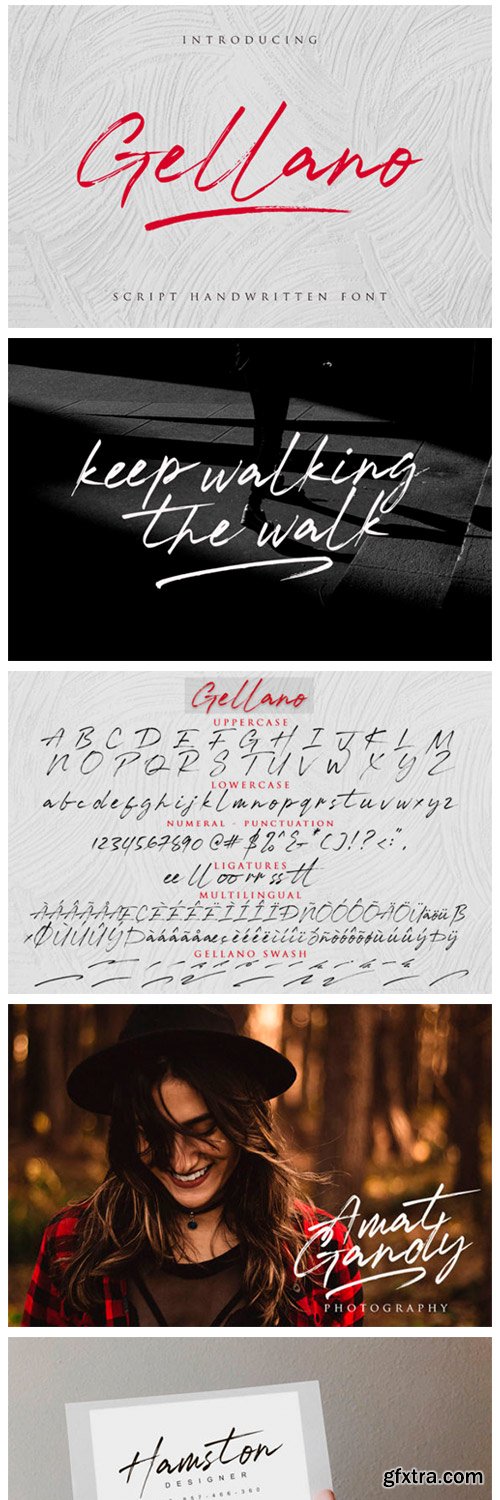 INTRODUCING
Gellano
SCRIPT HANDWRITTEN FONT
keep walking
the walk
Gellano
UPPERCASE
A B C D E F G H I J K L M
N O P Q R S T U V W X Y Z
LOWERCASE
a b c d e f g h i j k l m n o p q r s t u v w x y z
NUMERAL - PUNCTUATION
1 2 3 4 5 6 7 8 9 0 @ # $ % ^ & * ( ) ! ? < : " .
LIGATURES
ee ll oo rr ss tt
MULTILINGUAL
GELLANO SWASH
Amat
Gandy
PHOTOGRAPHY
Hamston
DESIGNER
gfxtra.com